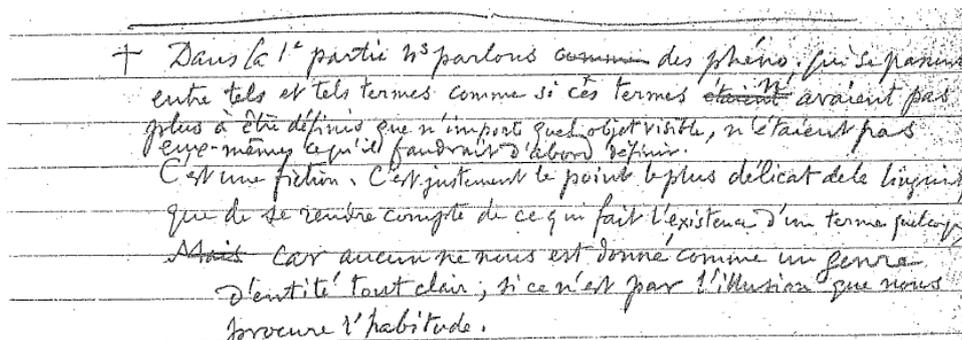 † Dans la 1e partie ns parlons comme des phéno. qui se passent
entre tels et tels termes comme si ces termes étaient n'avaient pas
plus à être définis que n'importe quel objet visible, n'étaient pas
eux-mêmes ce qu'il faudrait d'abord définir.
C'est une fiction. C'est justement le point le plus délicat de la linguis
que de se rendre compte de ce qui fait l'existence d'un terme quelcoq
Mais Car aucun ne nous est donné comme un genre
d'entité tout clair, si ce n'est par l'illusion que nous
procure l'habitude.